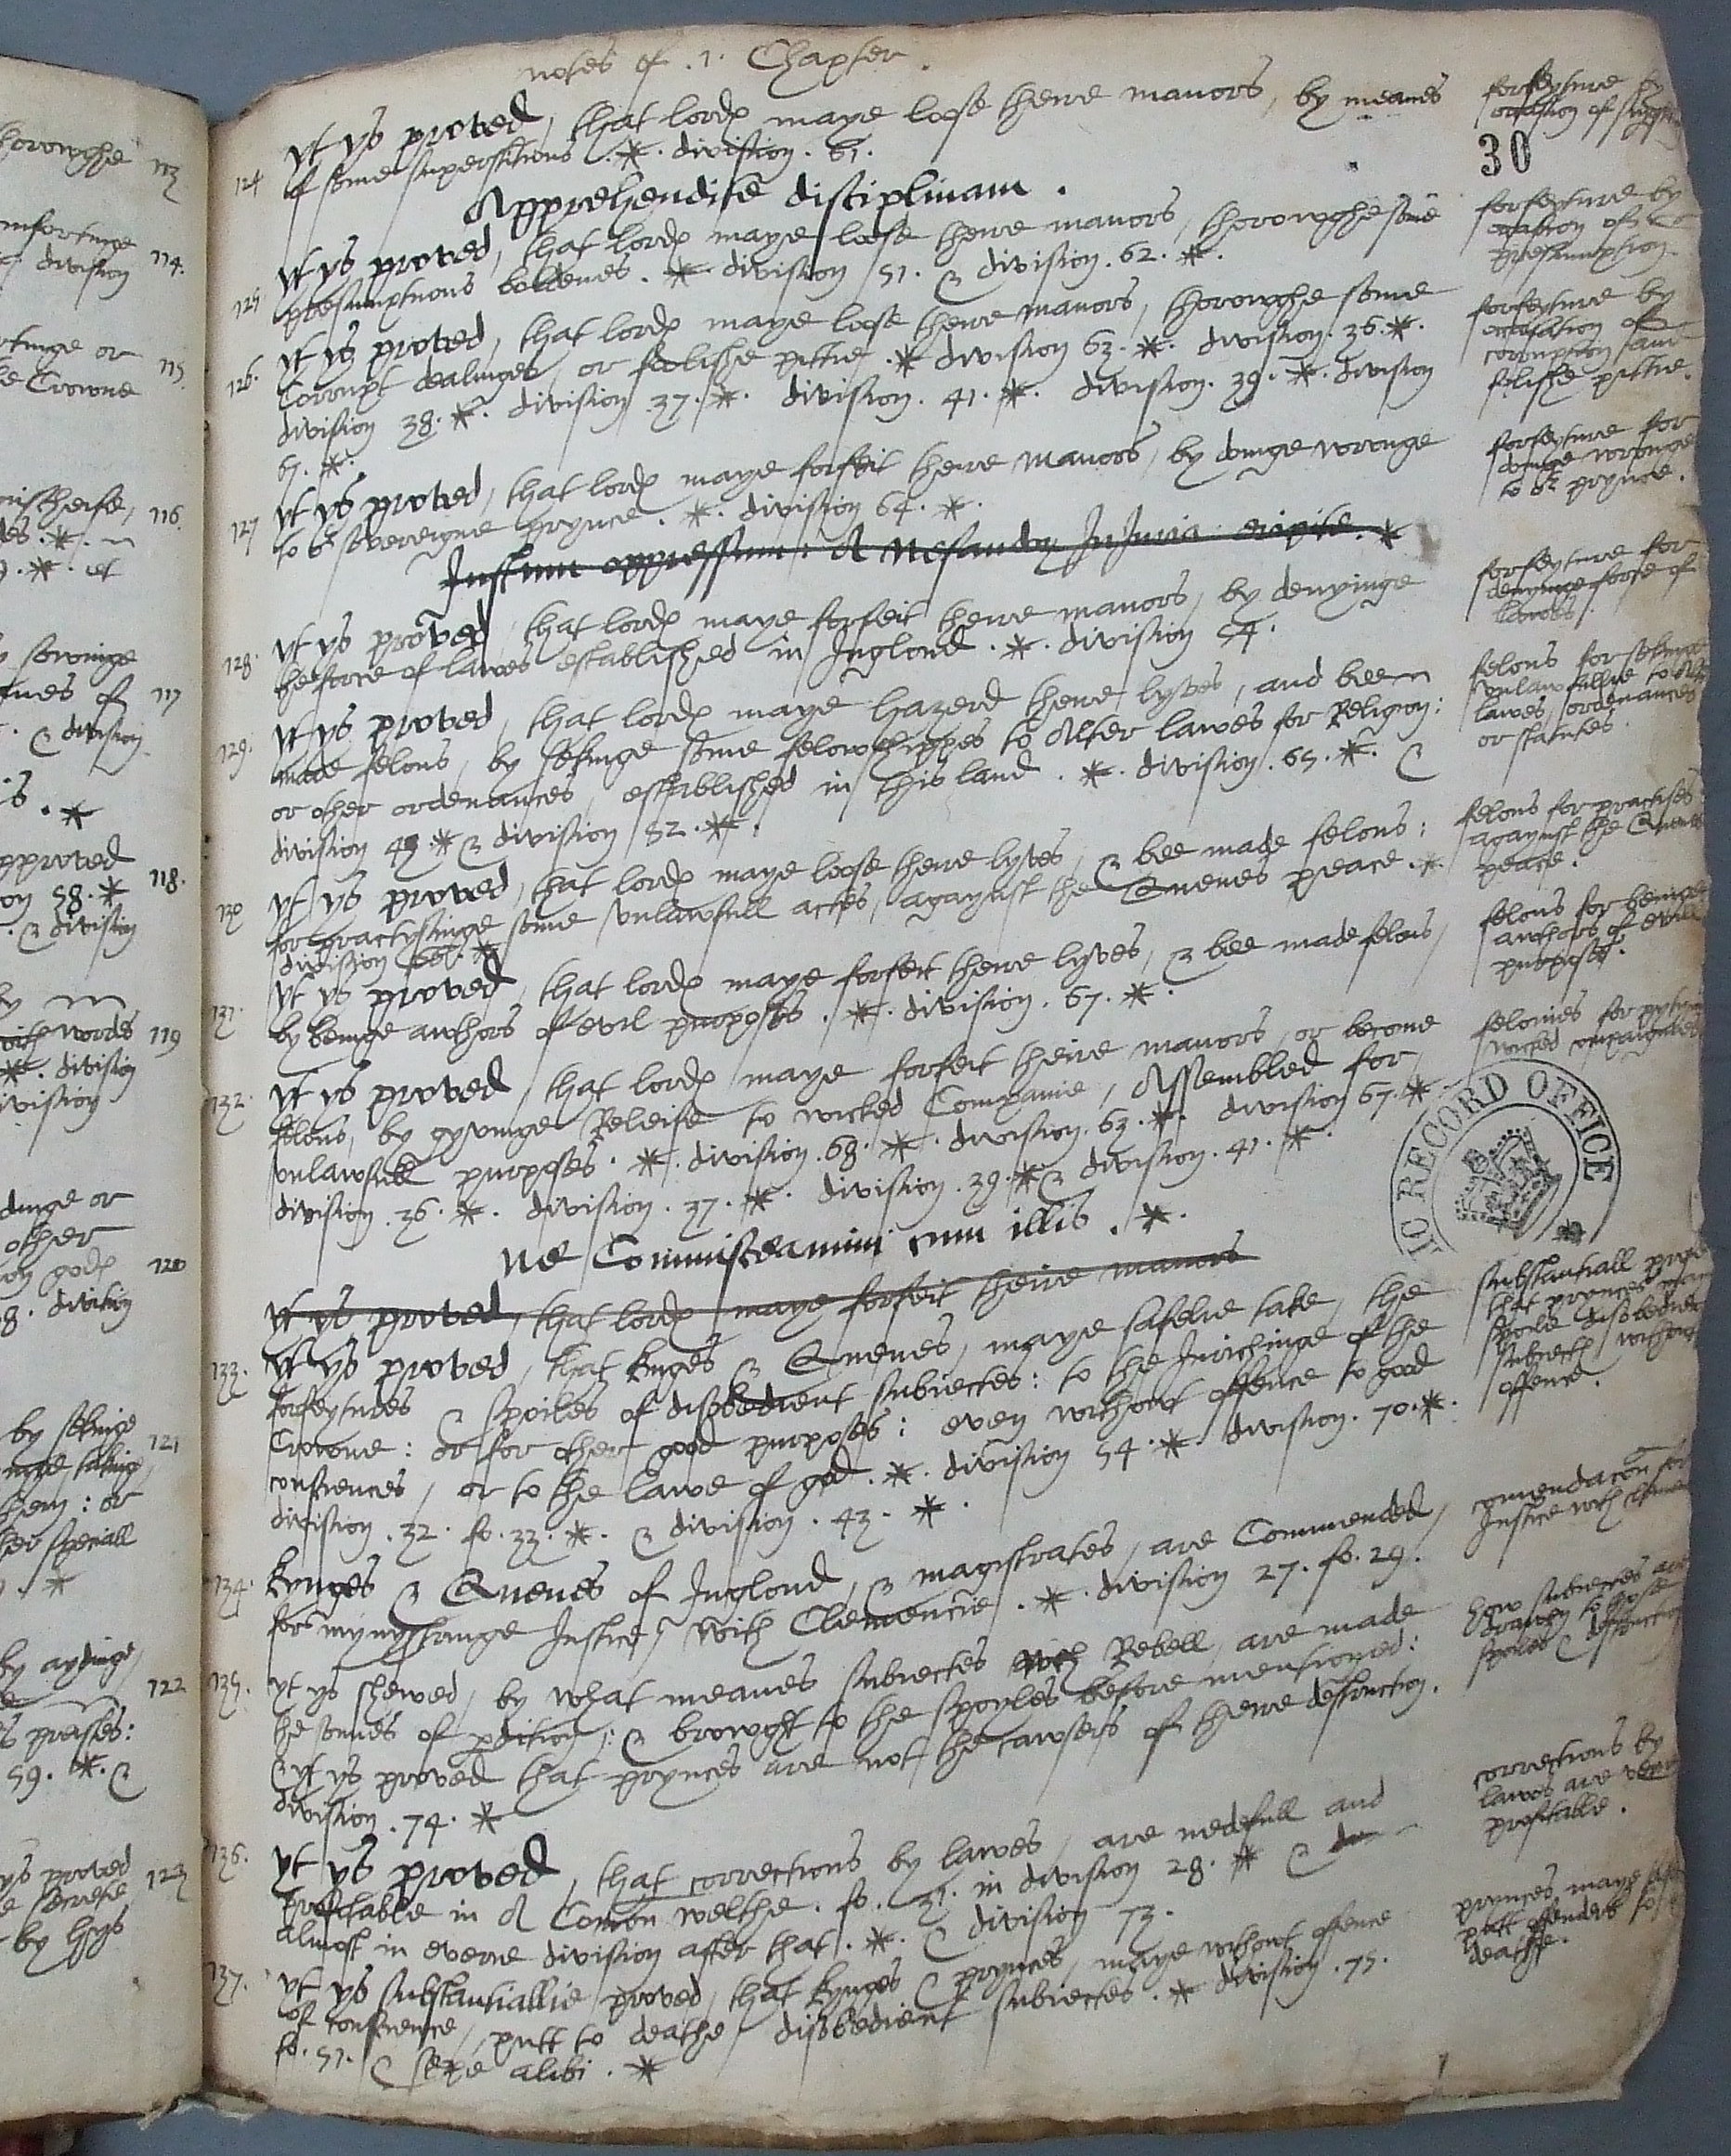 notes of .1. Chapter.
124 yt ys proved, that lordes maye loose theire manors, by meanes
of some superstitions .*. division. 61.
Apprehendite disciplinam.
125 yt ys proved, that lordes maye loose theire manors, thoroughe some
presumptuous boldenes. *. division 51. & division. 62. *.
126. yt ys proved, that lordes maye loose theire manors, thoroughe some
Corrupt dealinges, or folishe pittie .* division 63. *. division. 36. *.
division 38. *. division .37. *. division. 41. *. division. 39. *. division
67. *.
127 yt ys proved, that lordes maye forfeit theire manors, by doinge wronge
to the sovereigne prynce. *. division 64. *.
Iustum oppressum: A Iniuria eripite. *
128. yt ys proved, that lordes maye forfeit theire manors, by denyinge
the force of lawes established in Inglond. *. division 54.
129. yt ys proved, that lordes maye hazerd theire lyves, and bee
made felons, by sekinge some felowshippes to Alter lawes for Religion:
or other ordenances, established in this land. *. division. 65. *. &
division 49 * & division 52. *.
130 yt ys proved, that lordes maye loose theire lyves, & bee made felons:
for practysinge some unlawfull actes, agaynst the Quenes peace. *
division 66. *
131. yt ys proved, that lordes maye forfeit theire lyves, & bee made felons,
by beinge authors of evil purposes. *. division. 67. *.
132. yt ys proved, that lordes maye forfeit theire manors, or become
felons, by gyvinge Releife to wicked Companie, Assembled for
unlawfull purposes. *. division. 68. *. division. 63. *. division 67. *
division. 36. *. division. 37. *. division. 39. * & division. 41. *.
Ne Commisceamini cum illis. *.
yt ys proved, that lordes maye forfeit theire manors
133. yt ys proved, that kynges & Quenes, maye safelie take, the
forfeytures & spoiles of disobedient subiectes: to the Inrichinge of the
Crowne: or for other good purposes: even without offence to good
consciences, or to the lawe of god. *. division 54. * division. 70. *.
division. 32. fo. 33. *. & division. 43. *.
134. kynges & Quenes of Inglond, & magistrates, are Commended,
for mynystringe Justice, with Clemencie. *. division 27. fo. 29.
135. yt ys shewed, by what meanes subiectes wch Rebell, are made
the sonnes of pdition: & browght to the spoyles before mentioned:
& yt ys proved that prynces are not the cawsers of theire destruction.
division. 74. *
136. yt ys proved, that corrections by lawes, are nedefull and
profitable in A Comon welthe. fo. 31. in division 28. * &
almost in everie division after that. *. & division 73.
137. yt ys substantiallie proved, that kynges & prynces, maye without offence
of conscience, putt to deathe disobedient subiectes. * division. 75.
fo. 51. & sepe alibi. *
forfeyture by
occasion of
30
forfeyture by
occasion of
presumption
forfeyture by
occasion of
coruption and
folishe pittie.
forfeyture for
doinge wronge
to the prynce.
forfeyture for
denyinge force of
lawes.
felons for sekinge
unlawfullie to Alter
lawes, ordenances
or statutes.
felons for practises
agaynst the Quenes
peace.
felons for beinge
authors of evill
purposes.
felonies for gyvinge
wicked companies
RECORD OFFICE
substantiall
that prynces maye
spoile disobedient
subiectes without
offence.
comendacon for
Justice with
how subiectes are
drawen to those
spoiles & destruction
corrections by
lawes are verie
profitable.
prynces maye
putt offenders to
deathe.
thoroughe 113
114.
division
or 115.
the Crowne
116.
et
sowinge
of 117
& division
proved
on 58. * 118.
& division
words 119
*. division
division
other
120
8. division
by sekinge 121
them: or
speciall
by aydinge,
122
presses:
59. *. &
ys proved 123